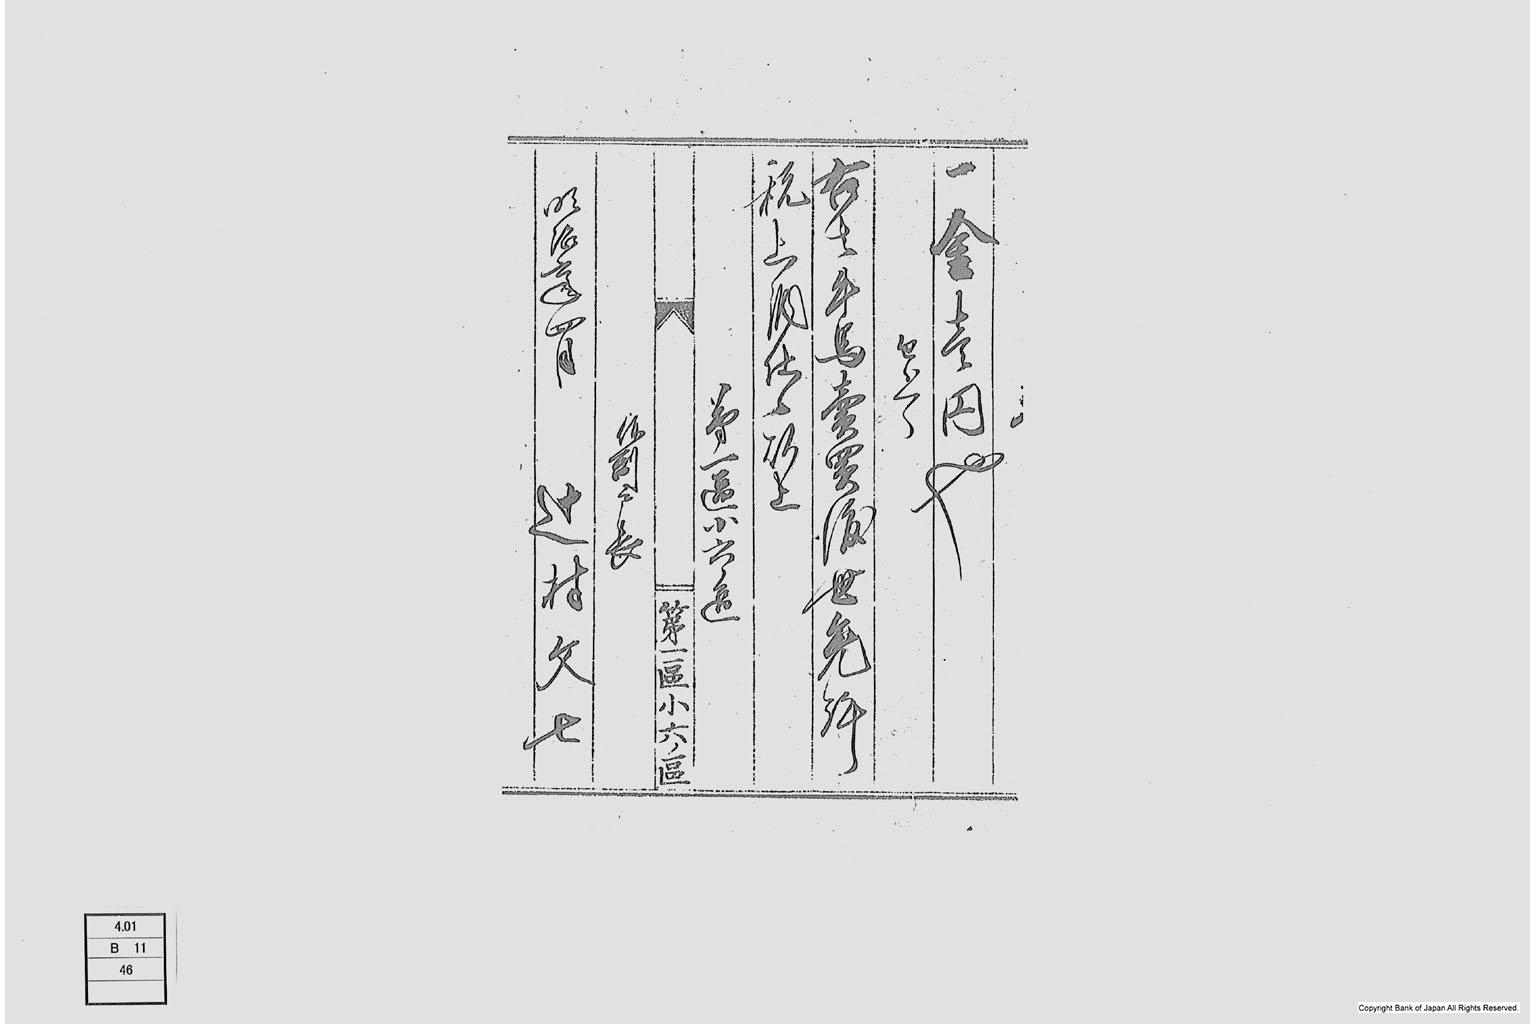 一金壱円也
右者牛馬賣買渡世免許
税上納仕候以上
第一區小六ノ區
第一區小六ノ區
副戸長
明治 年四月
辻村文七
4.01
B 11
46
Copyright Bank of Japan All Rights Reserved.